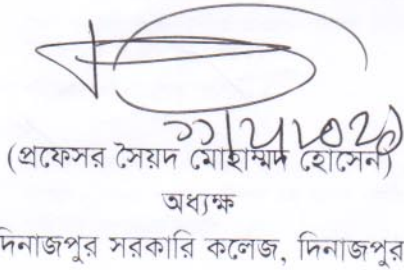 (প্রফেসর সৈয়দ মোহাম্মদ হোসেন)
অধ্যক্ষ
দিনাজপুর সরকারি কলেজ, দিনাজপুর